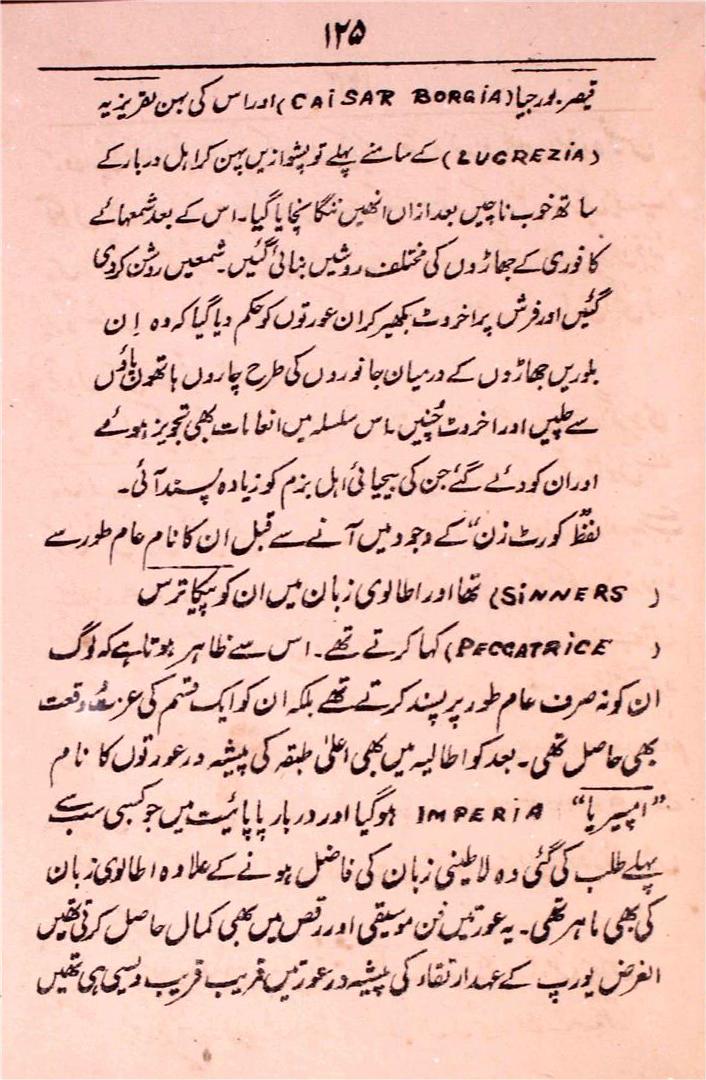 ۱۲۵
قیصر بورجیا (CAISAR BORGIA) اور اس کی بہن لقریزیہ
(LUCREZIA) کے سامنے پہلے تو پشوازیں پہن کر اہل دربار کے
ساتھ خوب ناچیں بعد ازاں انھیں ننگا نچایا گیا۔ اس کے بعد شمعہائے
کافوری کے جھاڑوں کی مختلف روشیں بنائی گئیں۔ شمعیں روشن کر دی
گئیں اور فرش پر اخروٹ بکھیر کر ان عورتوں کو حکم دیا گیا کہ وہ اِن
بلوریں جھاڑوں کے درمیان جانوروں کی طرح چاروں ہاتھوں پاؤں
سے چلیں اور اخروٹ چُنیں۔ اس سلسلہ میں انعامات بھی تجویز ہوئے
اور ان کو دئے گئے جن کی بیحیائی اہل بزم کو زیادہ پسند آئی۔
لفظ "کورٹ زن" کے وجود میں آنے سے قبل ان کا نام عام طور سے
(SINNERS) تھا اور اطالوی زبان میں ان کو پیکاترس
(PECCATRICE) کہا کرتے تھے۔ اس سے ظاہر ہوتا ہے کہ لوگ
ان کو نہ صرف عام طور پر پسند کرتے تھے بلکہ ان کو ایک قسم کی عزت و وقعت
بھی حاصل تھی۔ بعد کو اطالیہ میں بھی اعلیٰ طبقہ کی پیشہ ور عورتوں کا نام
"امپیریا" IMPERIA ہو گیا اور دربار پاپائیت میں جو کسبی سب سے
پہلے طلب کی گئی وہ لاطینی زبان کی فاضل ہونے کے علاوہ اطالوی زبان
کی بھی ماہر تھی۔ یہ عورتیں فن موسیقی اور رقص میں بھی کمال حاصل کرتی تھیں
الغرض یورپ کے عہد ارتقاء کی پیشہ ور عورتیں قریب قریب ویسی ہی تھیں